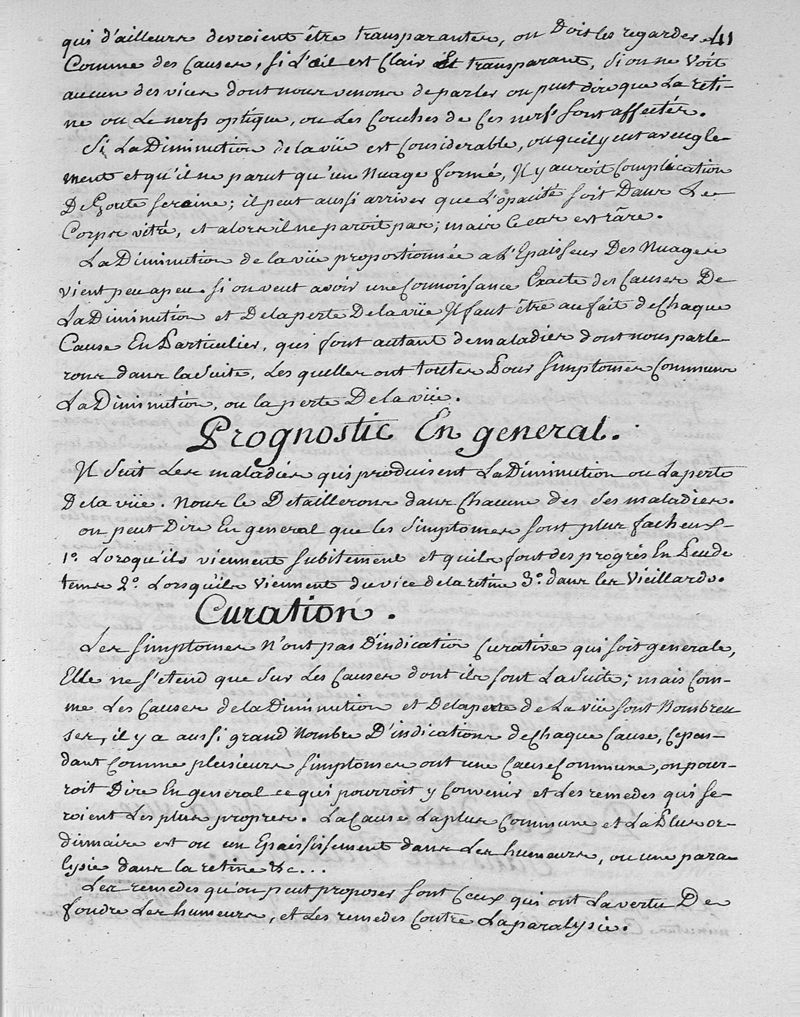 41
qui d'ailleurs devroient être transparantes, on Doit les regarder
Comme des Causes, si L'œil est Clair Et transparant, si on ne Voit
aucun des vices dont nous venons de parler on peut dire que La reti-
ne ou Le nerfs optique, ou Les Couches de Ces nerfs sont affectés.
Si La Diminution de la vüe est Considerable, ou qu'il y eut aveugle-
ment et qu'il ne parut qu'un Nuage formé, Il y auroit Complication
De Goute seraine; il peut aussi arriver que L'opacité soit Dans Le
Corps vitré, et alors il ne paroit pas; mais Ce cas est râre.
La Diminution de la vüe proportionnée a L'Epaisseur Des Nuages
vient peu a peu. si on veut avoir une Connoissance Exacte des Causes De
La Diminution et De la perte De la vüe Il faut être au fait de Chaque
Cause En Particulier, qui font autant de maladies dont nous parle-
rons dans la suite, Les quelles ont toutes Pour simptomes Communs
La Diminution, ou la perte De la vüe.
Prognostic En general.
Il suit Les maladies qui produisent La Diminution ou La perte
De la vüe. Nous le Detaillerons dans Chacune des ses maladies.
on peut Dire En general que les simptomes sont plus facheux
1.° Lorsqu'ils viennent subitement et quils font des progrès En Peu de
tems 2.° Lorsqu'ils Viennent du vice de la retine 3.° dans les Vieillards.
Curation.
Les simptomes N'ont pas D'indication Curative qui soit generale,
Elle ne s'etend que sur Les Causes dont ils sont La suite; mais Com-
me Les Causes de la Diminution et De la perte de La vüe sont Nombreu
ses, il y a aussi grand Nombre D'indications de Chaque Cause, Cepen-
dant Comme plusieurs simptomes ont une Cause Commune, on pour-
roit Dire En general ce qui pourroit y Convenir et Les remedes qui se-
roient Les plus propres. La Cause La plus Commune et La Plus or-
dinnaire est ou un Epaississement dans Les humeurs, ou une para
lysie dans la retine &c...
Les remedes qu'on peut proposer sont Ceux qui ont La vertu De
fondre Les humeurs, et Les remedes Contre La paralysie.